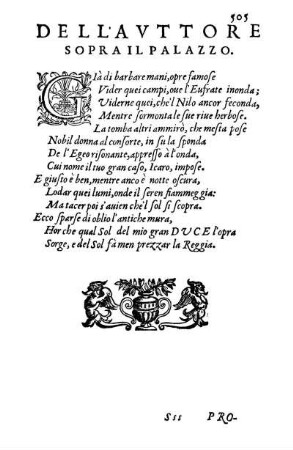 505
DELL'AVTTORE
SOPRA IL PALAZZO.
Già di barbare mani, opre famose
Vider quei campi, oue l'Eufrate inonda;
Viderne quei, ché'l Nilo ancor feconda,
Mentre sormonta le sue riue herbose.
La tomba altri ammirò, che mesta pose
Nobil donna al consorte, in su la sponda
De l'Egeo risonante, appresso à l'onda,
Cui nome il tuo gran caso, Icaro, impose.
E giusto è ben, mentre anco è notte oscura,
Lodar quei lumi, onde il seren fiammeggia:
Ma tacer poi s'auien che'l sol si scopra.
Ecco sparse di oblio l'antiche mura,
Hor che qual Sol del mio gran DVCE l'opra
Sorge, e del Sol fà men prezzar la Reggia.
Sss PRO-